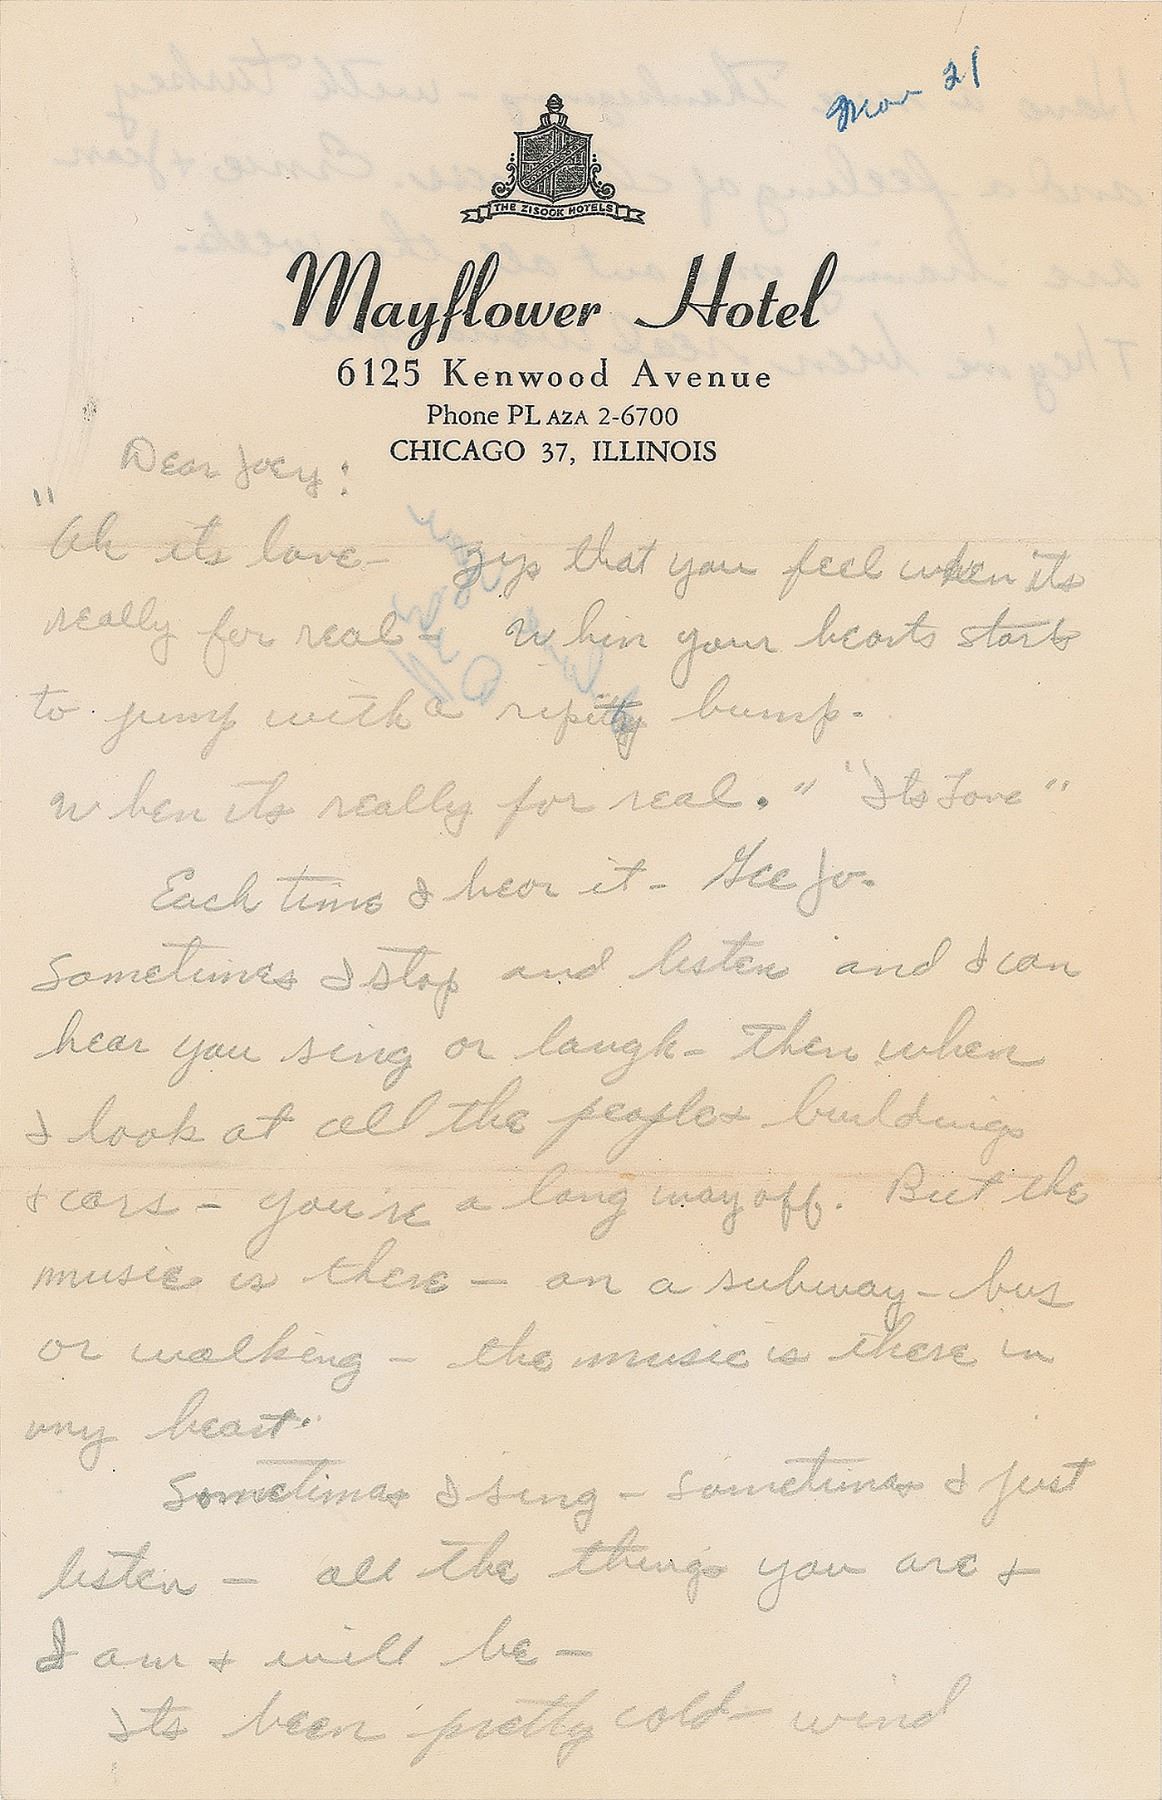 Nov 21
THE ZISOOK HOTELS
Mayflower Hotel
6125 Kenwood Avenue
Phone PLAZA 2-6700
CHICAGO 37, ILLINOIS
Dear Joey:
"Ah its love— that you feel when its
really for real— When your hearts start
to jump with a bump.
When its really for real." "Its Love"
Each time I hear it— Gee Jo.
Sometimes I stop and listen and I can
hear you sing or laugh— then when
I look at all the people + buildings
+ cars — you're a long way off. But the
music is there — on a subway — bus
or walking — the music is there in
my heart.
Sometimes I sing — sometimes I just
listen — all the things you are +
I am + will be —
Its been pretty cold— wind